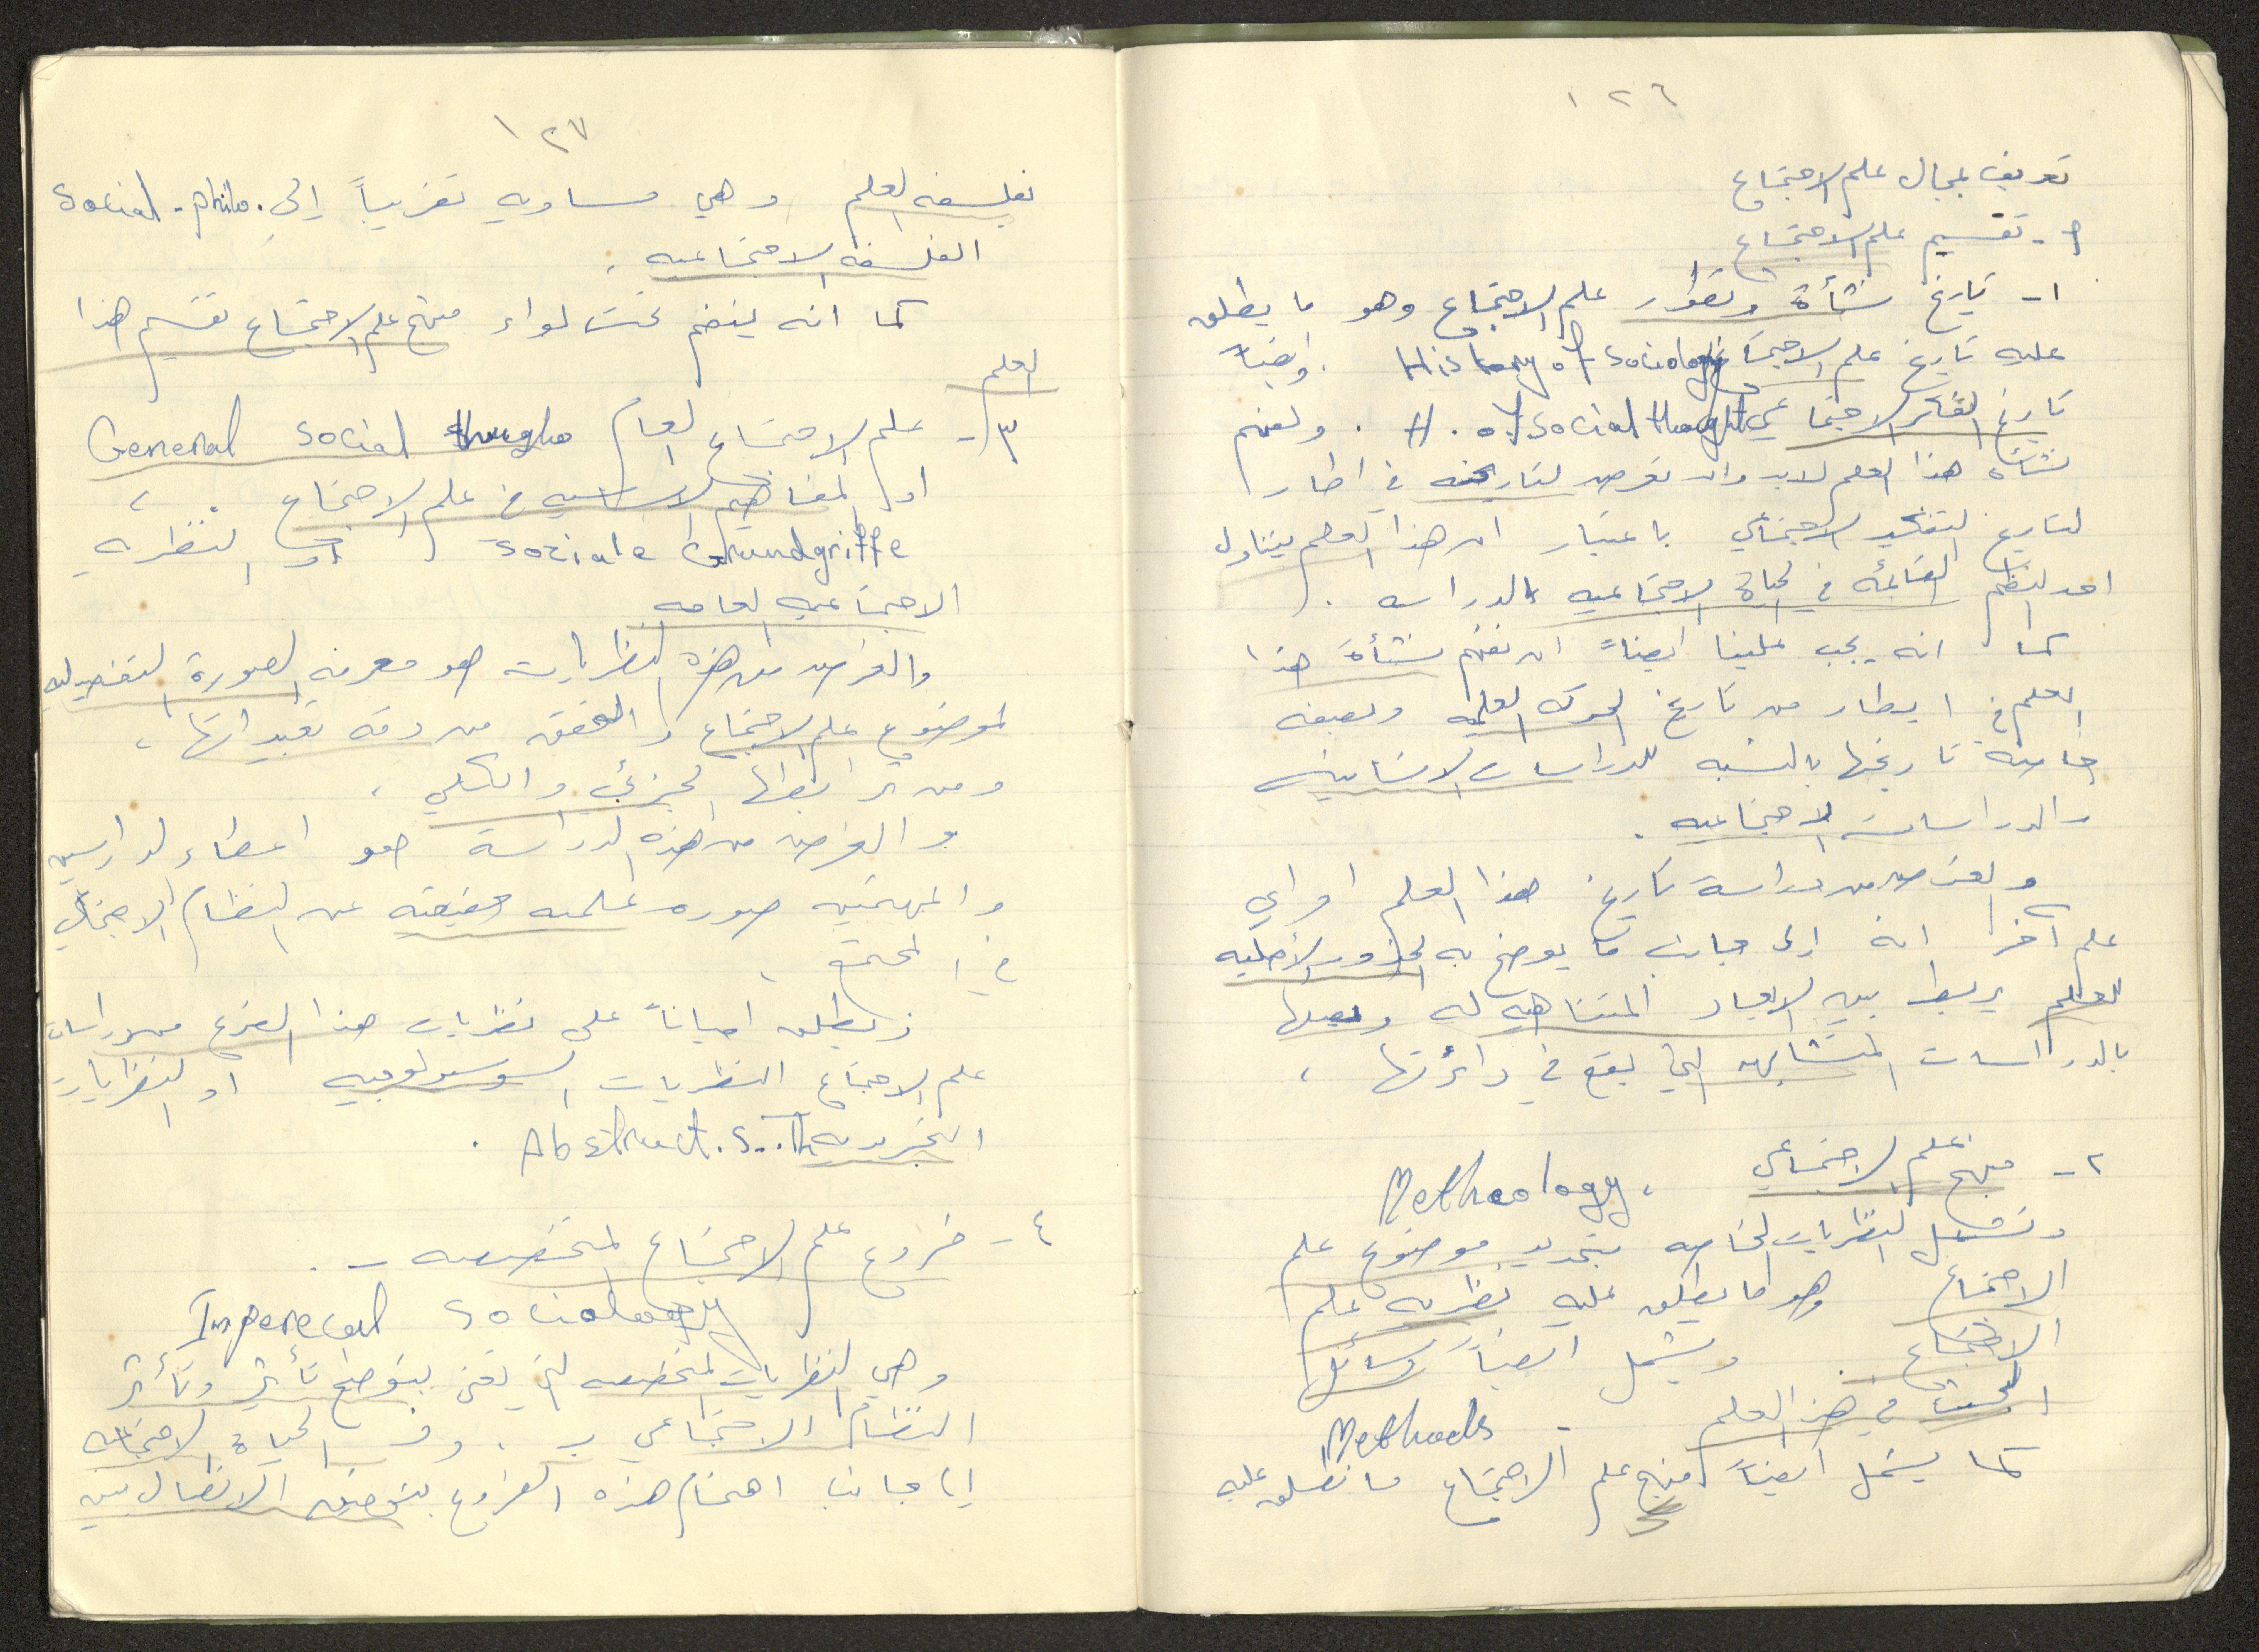 ١٢٦
تعريف بمجال علم الاجتماع
أ- تقسيم علم الاجتماع
١- تاريخ نشأة وتطور علم الاجتماع وهو ما يطلق
عليه تاريخ علم الاجتماع History of Sociology. وايضاً
تاريخ الفكر الاجتماعي H. of Social thought. ولفهم
نشأة هذا العلم لابد وان نعرض لتاريخه في اطار
لتاريخ التفكير الاجتماعي باعتبار ان هذا العلم يتناول
احد النظم القائمة في الحياة الاجتماعيه بالدراسه.
كما انه يجب علينا ايضاً ان نفهم نشأة هذا
العلم في ايطار من تاريخ الحركه العلميه وبصفه
خاصه تاريخها بالنسبه للدراسات الانسانيه
والدراسات الاجتماعيه.
والغرض من دراسة تاريخ هذا العلم او اي
علم آخر انه الى جانب ما يوضح به الجذور الأصليه
للعلم يربط بين الابعاد المتناهيه له ويصلها
بالدراسات المتشابهه التي تقع في دائرتها،
٢- منهج علم الاجتماعي، Metheology
وتشمل النظريات الخاصه بتحديد موضوع علم
الاجتماع وهو ما يطلق عليه نظريه علم
الاجتماع. ويشمل ايضاً وسائل
البحث في هذا العلم. Methods
كما يشمل ايضاً منهج علم الاجتماع ما نطلق عليه
١٢٧
بفلسفه العلم وهي مساويه تقريباً إلى Social. philo.
الفلسفه الاجتماعيه.
كما انه ينضم تحت لواء منهج علم الاجتماع تقسيم هذا
العلم
٣- علم الاجتماع العام General Social
او المفاهيم الاساسيه في علم الاجتماع،
Soziale Grundgriffe او النظريه
الاجتماعيه العامه
والغرض من هذه النظريات هو معرفه الصورة التفصيليه
لموضوع علم الاجتماع والتحقق من دقه تعبيراتها،
ومن ترابطها الجزئي والكلي،
والغرض من هذه الدراسة هو اعطاء الدارسين
والمهتمين صوره علميه حقيقيه عن النظام الاجتماعي
في المجتمع،
ونطلق احياناً على نظريات هذا الفرع من دراسات
علم الاجتماع النظريات السوسيولوجيه او النظريات
التجريديه Abstract. S. Th.
٤- فروع علم الاجتماع المتخصصه -.
Imperecal Sociology
وهي النظريات المتخصصه التي تعني بتوضيح تأثير وتأثر
النظام الاجتماعي بـ. وفي الحياة الاجتماعيه
إلى جانب اهتمام هذه الفروع بتوضيح الاتصال بين